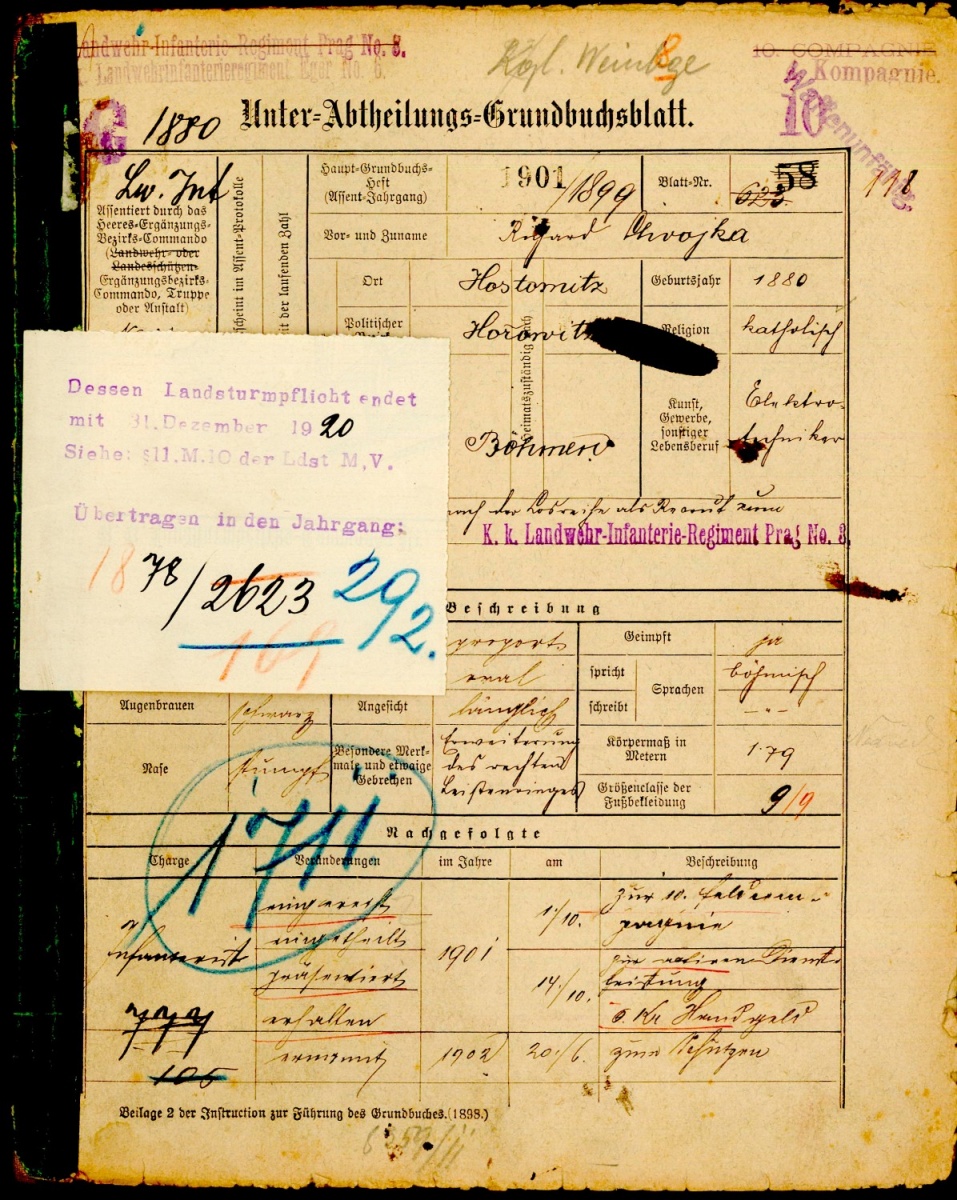 Landwehr-Infanterie-Regiment Prag No. 8.
Landwehrinfanterieregiment Eger No. 6.
Kgl. Weinbge
8
10. COMPAGNIE
Kompagnie.
10
Waffenunfähig
1880
Unter-Abtheilungs-Grundbuchsblatt.
Lw. Inf
Assentiert durch das
Heeres-Ergänzungs-
Bezirks-Commando
(Landwehr- oder
Landesschützen-
Ergänzungsbezirks-
Commando, Truppe
oder Anstalt)
Haupt-Grundbuchs-
Heft
(Assent-Jahrgang)
1901/1899
Blatt-Nr.
58
623
118
Vor- und Zuname
Richard Chvojka
Ort
Hostomitz
Geburtsjahr
1880
Politischer
Horowitz
Religion
katholisch
Böhmen
Kunst,
Gewerbe,
sonstiger
Lebensberuf
Elektro-
techniker
nach der Losreihe als Recrut zum
K. k. Landwehr-Infanterie-Regiment Prag No. 8.
Dessen Landsturmpflicht endet
mit 31. Dezember 1920
Siehe: §11.M.10 der Ldst M,V.
Übertragen in den Jahrgang:
1878/2623
292.
169
Beschreibung
proport.
Geimpft
ja
oval
spricht
Sprachen
böhmisch
schreibt
-"-
Augenbrauen
schwarz
Angesicht
länglich
Nase
stumpf
Besondere Merk-
male und etwaige
Gebrechen
Erweiterung
des rechten
Leistenringes
Körpermaß in
Metern
1·79
Größenclasse der
Fußbekleidung
9/9
1711
Nachgefolgte
Charge
Veränderungen
im Jahre
am
Beschreibung
Infanterist
eingereiht
eingetheilt
1901
1/10.
zur 10. Feldcom-
pagnie
präsentiert
14/10.
zur activen Dienst-
leistung
777
erhalten
6 Kr Handgeld
105
ernannt
1902
20/6.
zum Schützen
Beilage 2 der Instruction zur Führung des Grundbuches. (1898.)